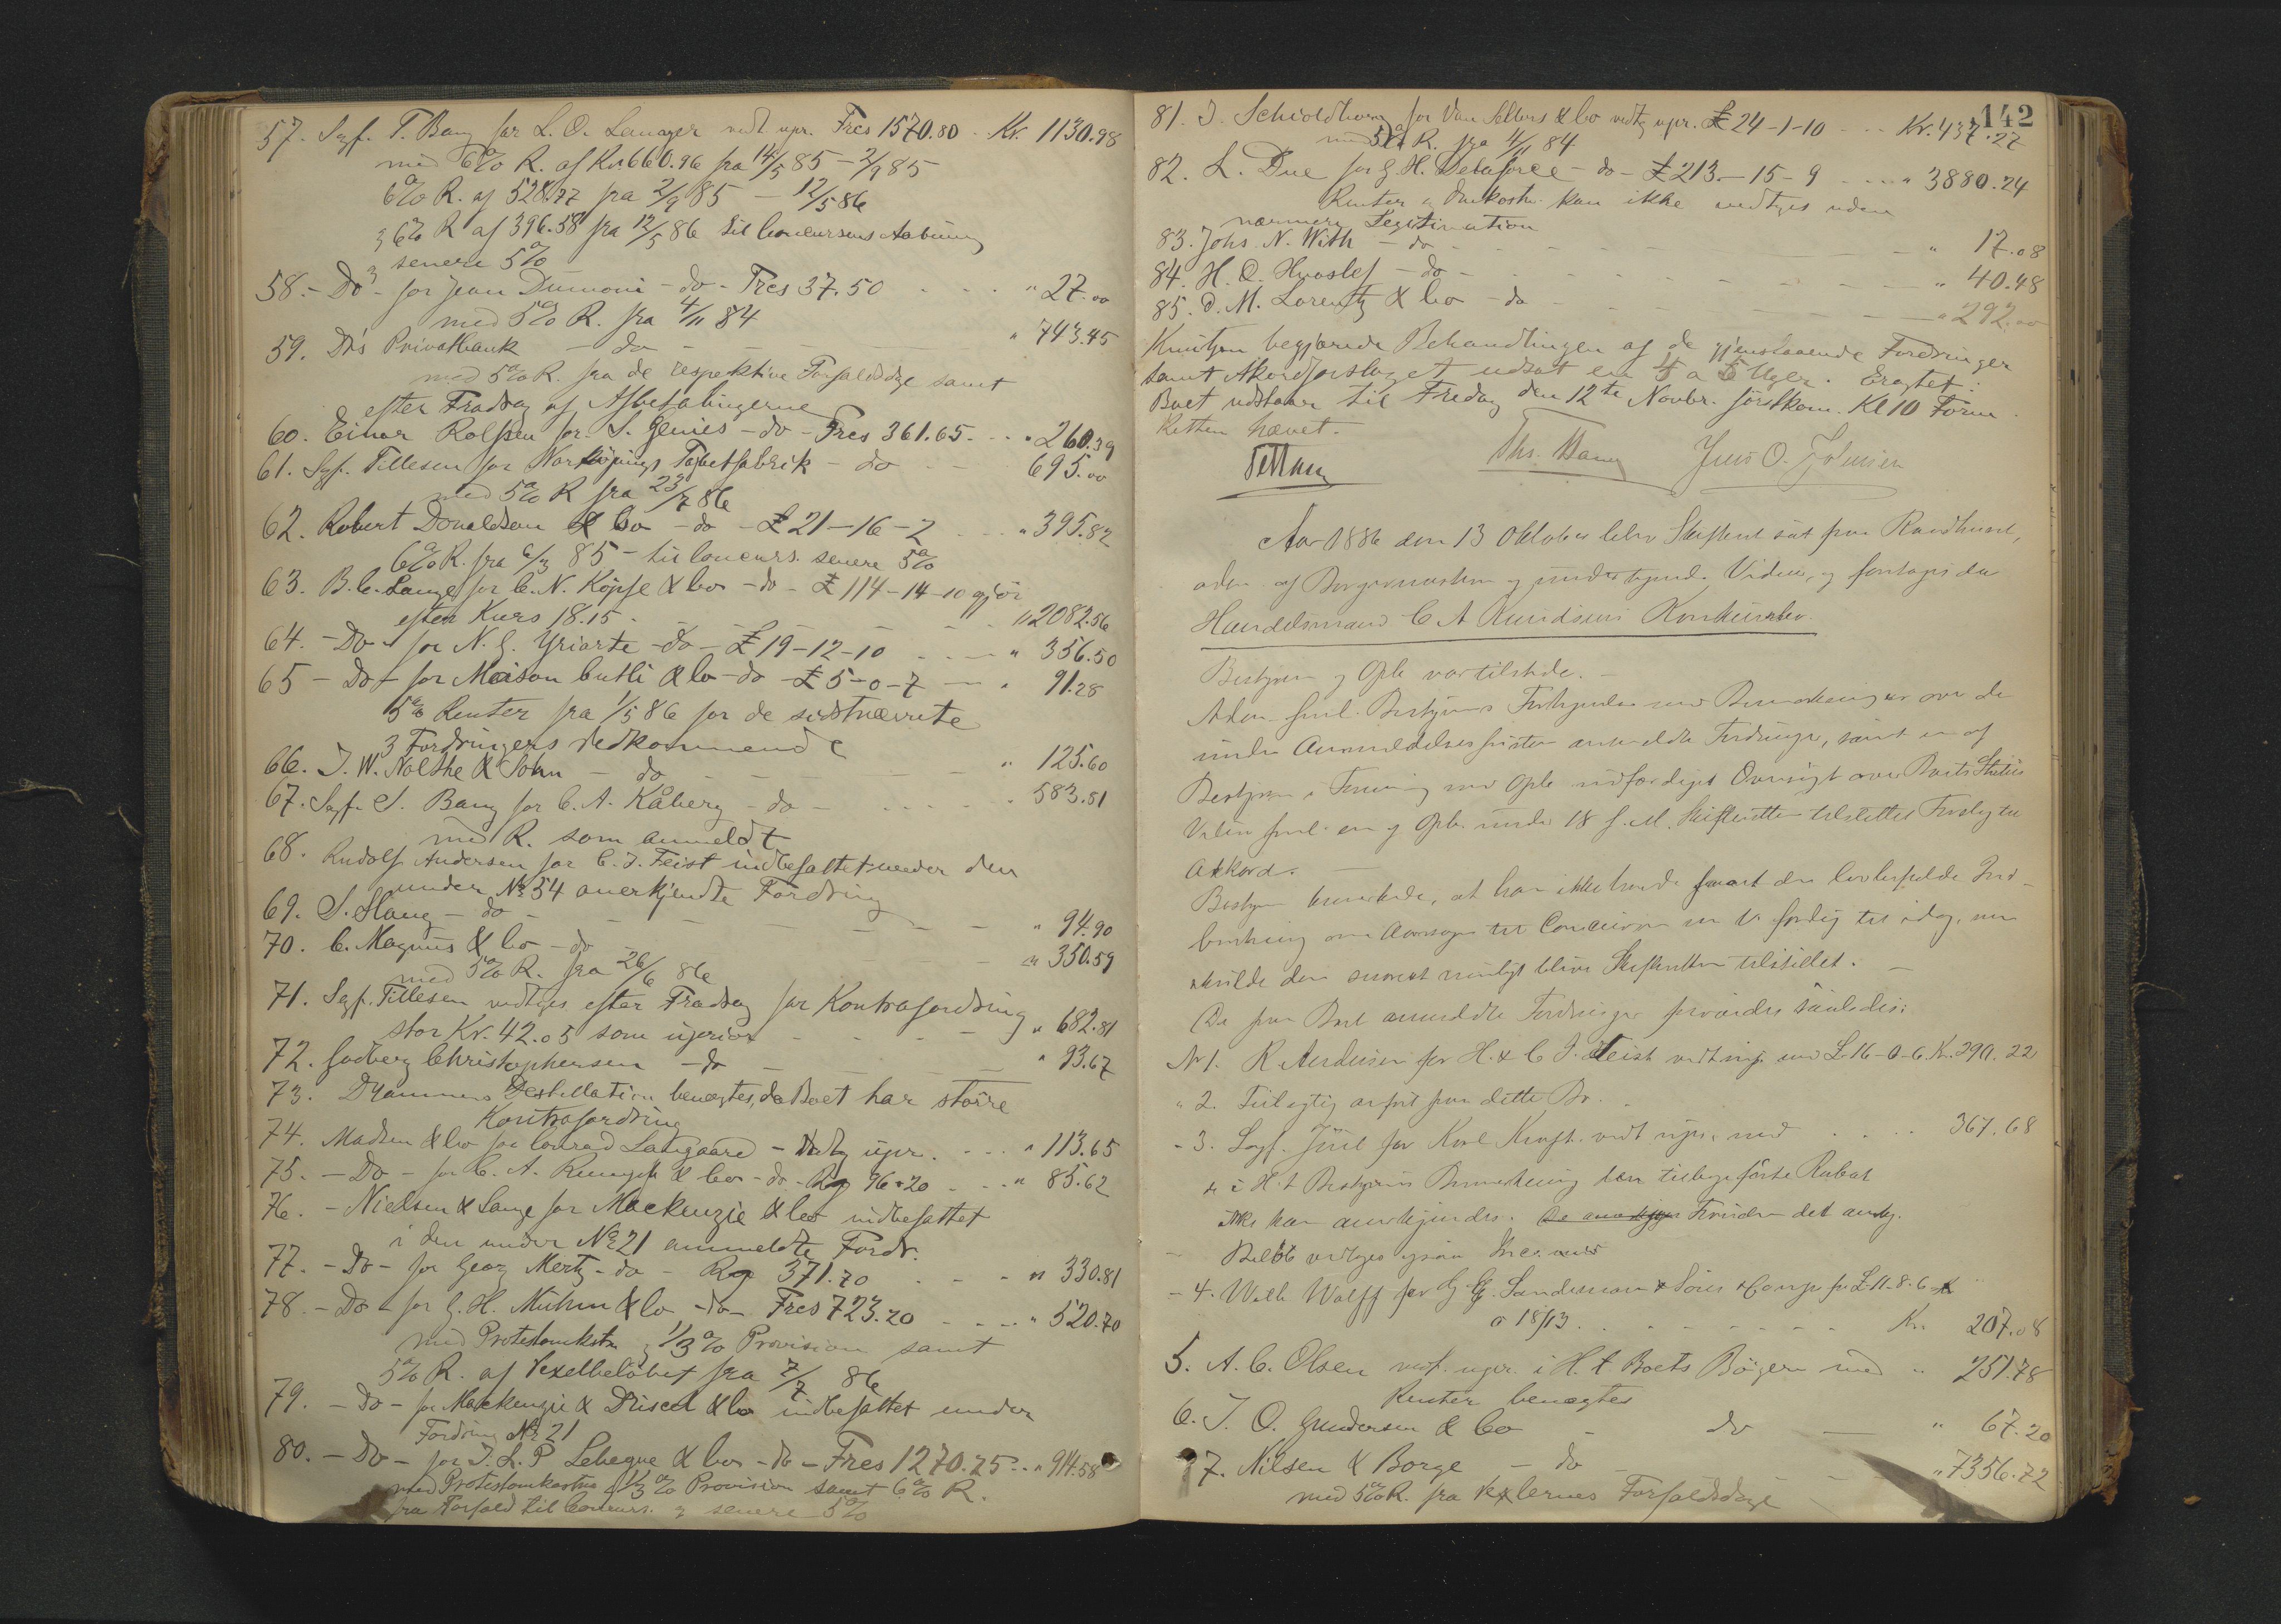 57. Sagf. T. Bang for L. O. Lanager vedt. upr. Frcs 1570.80 - Kr. 1130.98
med 6% R. af Kr. 660.96 fra 14/5 85 - 2/9 85
6% R. af 528.77 fra 2/9 85 - 12/5 86
& 6% R af 396.58 fra 12/5 86 til Concursens Aabning
& senere 5%
58. - Do - for Jean Dumoni - do - Frcs 37.50 " 27.00
med 5% R. fra 4/11 84
59. Dr's Privatbank - do - " 743.45
med 5% R. fra de respektive Forfaldsdage samt
efter Fradrag af Afbetalingerne
60. Einar Rolfsen for S. Genies - do - Frcs 361.65. " 260.39
61. Sagf. Tillesen for Norköpings Tapetfabrik - do - - 695.00
med 5% R fra 23/7 86
62. Robert Donaldson & Co - do - £ 21-16-2 " 395.82
6% R. fra 6/3 85 - til Concurs. senere 5%
63. B. C. Lange for C. N. Kopfe & Co - do - £ 114-14-10 gjør
efter Kurs 18.15 " 2082.56
64. - Do - for N. G. Yriarte - do - £ 19-12-10 " 356.50
65 - Do - for Maison Cutli & Co - do £ 5-0-7 " 91.28
5% Renter fra 1/5 86 for de sidstnævnte
3 Fordringers Vedkommende
66. J. W. Nolthe & Sohn - do " 125.60
67. Sagf. S. Bang for C. A. Kåberg - do - " 583.81
med R. som anmeldt
68. Rudolf Andersen for C. J. Feist indbefattet under den
under No 54 anerkjendte Fordring
69. S. Haug - do - " 94.90
70. C. Magnus & Co - do " 350.59
med 5% R. fra 26/6 86
71. Sagf. Tillesen vedtges efter Fradrag for Kontrafordring
stor Kr. 42.05 som uprior " 682.81
72. Ludberg Christophersen - do " 93.67
73. Drammens Destillation benegtes, da Boet har større
Kontrafordring
74. Madsen & Co for Conrad Langaard - Vedtg upr. " 113.65
75. - Do - for C. A. Runge & Co - do - Rg 96.20 " 85.62
76. - Nielsen & Lange for Mackenzie & Co indbefattet
i den under No 21 anmeldte Fordr.
77. - Do - for Georg Mertz - do - Rg 371.70 " 330.81
78. - Do - for G. H. Muhm & Co - do - Frcs 723.20 " 520.70
med Protestomkstn & 1/3 % Provision samt
5% R. af Vexelbeløbet fra 7/7 86
79. - Do - for Mackenzie & Driscol & Co indbefattet under
Fordring No 21
80. - Do - for J. L. P Lebegue & Co - do - Frcs 1270.25 " 914.58
med Protestomkostn & 1/3 % Provision samt 6% R.
fra Forfald til Concurs. & senere 5%
142
81. J. Schioldborg for Van Sellers & Co vedtg upr. £ 24-1-10 Kr. 437.27
med 5% R. fra 4/11 84
82. L. Due for G. H. Delaforce - do - £ 213-15-9 " 3880.24
Renter & Omkostn. kan ikke vedtges uden
nærmere Legitimation
83. Johs. N. With - do " 17.08
84. H. O. Hvoslef - do - " 40.48
85. O. M. Lorentz & Co - do " 292.00
Knutzen begjærede Behandlingen af de gjenstaaende Fordringer
samt Akordforslaget udsat en 4 a 5 Uger. Eragtet:
Boet udstaar til Fredag den 12te Novbr. førstkom. Kl 10 Form.
Retten hævet.
Ths. Bang Jens O. Johnsen
Aar 1886 den 13 Oktober blev Skifteret sat paa Raadhuset,
adm. af Borgermesteren og undertegnede Vidner, og foretoges da
Handelsmand C A Knudsens Konkursbo.
Bestyrer og Opb. var tilstede. -
Adm. freml. Bestyrers Fortegnelse med Bemærkninger over de
under Anmeldelsesfristen anmeldte Fordringer, samt en af
Bestyrer i Forening med Opb. udfærdiget Oversigt over Boets Status
Videre freml. en af Opb. under 18 f. M. Skifteretten tilstillet Forslag til
Akkord. -
Bestyr. bemærkede, at han ikke havde faaet den lovbefalede Ind-
beretning om Aarsagen til Concursen m. v. færdig til idag, men
skulde den snarest muligt blive Skifteretten tilstillet. -
De paa Boet anmeldte Fordringer prøvedes saaledes:
No 1. R Andersen for H. & C J. Feist vedtages med £ 16-0-6. Kr. 290.22
" 2. Feilagtig anført paa dette Bo.
- 3. Sagf. Juul for Karl Kraft. vedt upr. med 367.68
& i H. t Bestyrers Bemærkning den tilbageførte Rabat
ikke kan anerkjendes. Forinden det anmg.
Beløb vedtges
- 4. Wilh Wolff for G. G. Sandeman & Sons & Comp. for £ 11.8.6
a 18/13 Kr. 207.08
5. A. C. Olsen vedt. upr. i H. t Boets Bøger med " 251.78
Renter benegtes
6. J. O. Gundersen & Co - do " 67.20
7. Nilsen & Borge - do - " 7356.72
med 5% R. fra Vexlernes Forfaldsdage